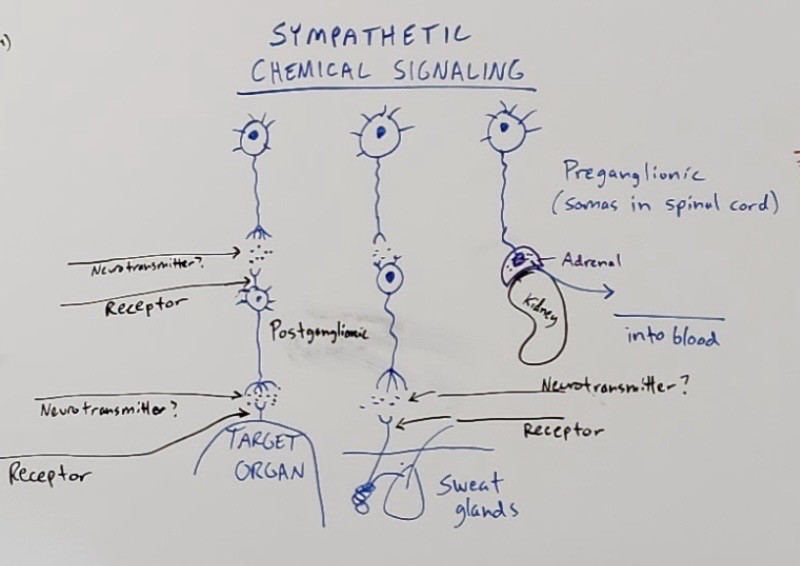 SYMPATHETIC
CHEMICAL SIGNALING
Preganglionic
(somas in spinal cord)
Neurotransmitter?
Receptor
Adrenal
Kidney
into blood
Postganglionic
Neurotransmitter?
Receptor
TARGET
ORGAN
Neurotransmitter?
Receptor
Sweat
glands